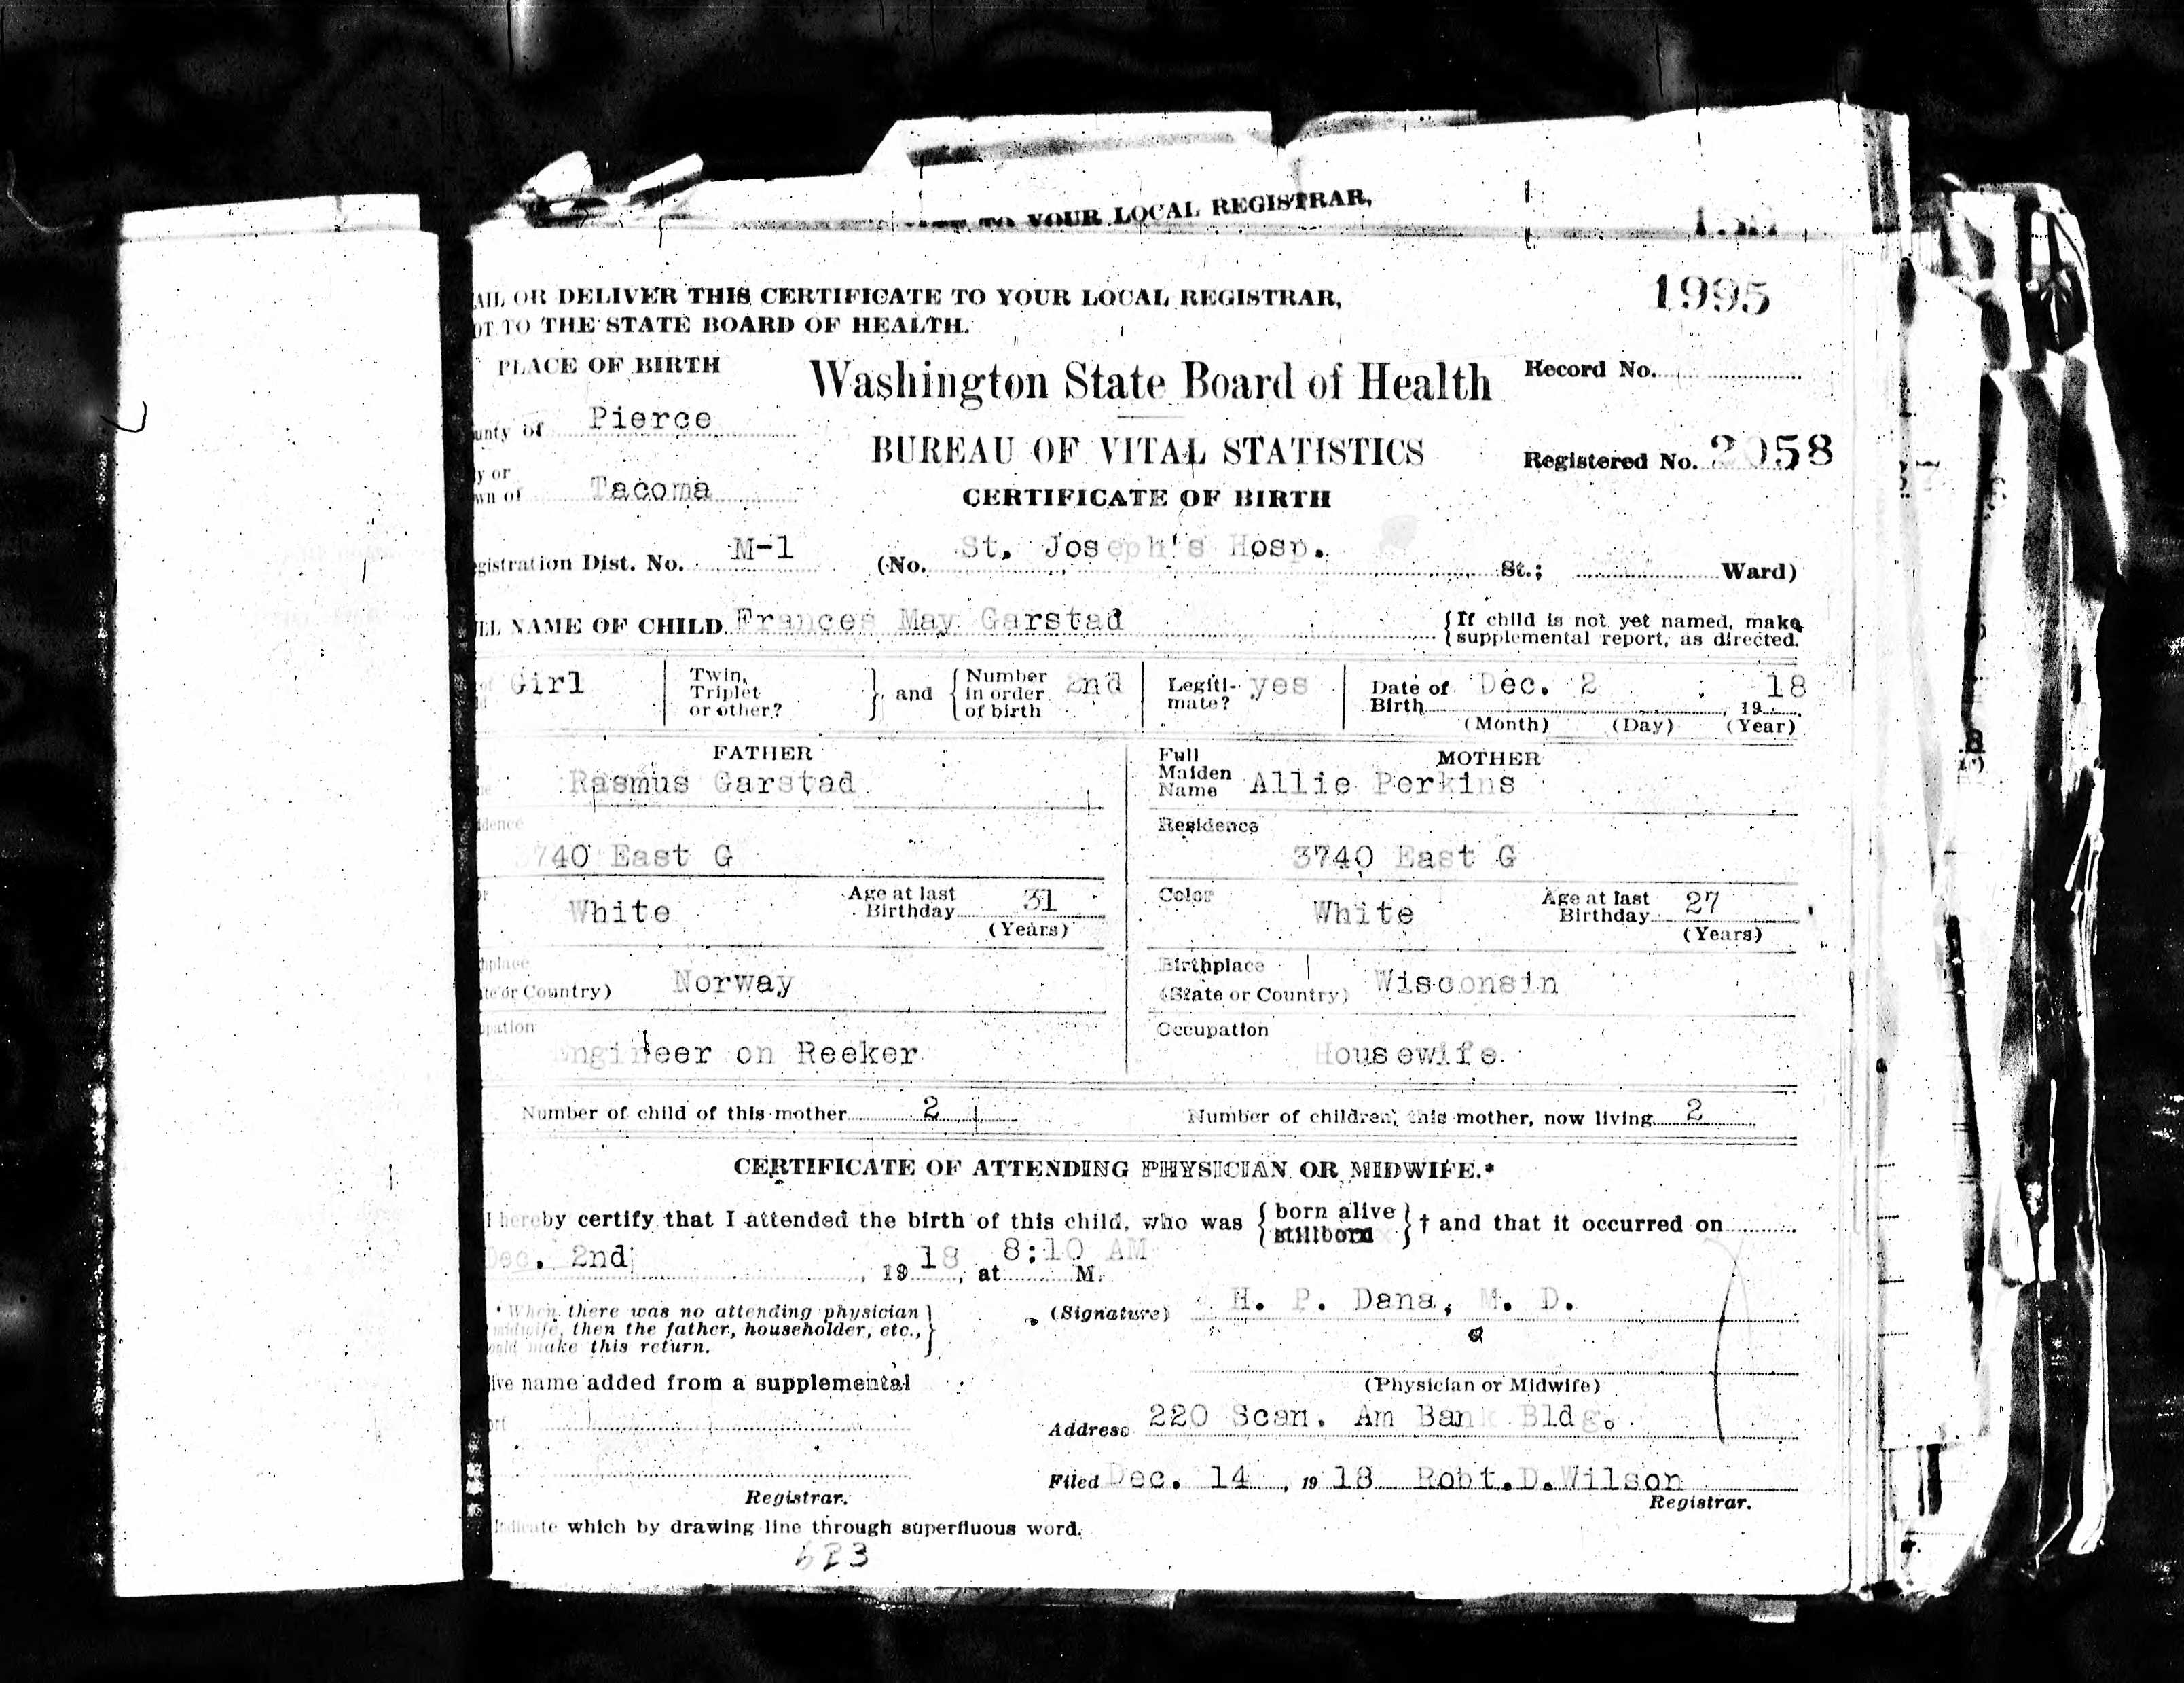 TO YOUR LOCAL REGISTRAR,
AIL OR DELIVER THIS CERTIFICATE TO YOUR LOCAL REGISTRAR,
OT TO THE STATE BOARD OF HEALTH.
1995
PLACE OF BIRTH
Washington State Board of Health
Record No.
unty of Pierce
BUREAU OF VITAL STATISTICS
Registered No. 2058
y or
wn of Tacoma
CERTIFICATE OF BIRTH
gistration Dist. No. M-1 (No. St. Joseph's Hosp. St.; Ward)
LL NAME OF CHILD Frances May Garstad
{If child is not yet named, make
supplemental report, as directed.
Girl
Twin,
Triplet
or other?
} and {
Number
in order
of birth
2nd
Legiti-
mate?
yes
Date of
Birth Dec. 2, 19 18
(Month) (Day) (Year)
FATHER
Rasmus Garstad
MOTHER
Full
Maiden
Name Allie Perkins
idence
3740 East G
Residence
3740 East G
White
Age at last
Birthday 31
(Years)
Color
White
Age at last
Birthday 27
(Years)
hplace
te or Country) Norway
Birthplace
(State or Country) Wisconsin
pation
Engineer on Reeker
Occupation
Housewife.
Number of child of this mother 2
Number of children, this mother, now living 2
CERTIFICATE OF ATTENDING PHYSICIAN OR MIDWIFE.*
I hereby certify that I attended the birth of this child, who was {born alive
stillborn} † and that it occurred on
Dec. 2nd, 19 18, at 8:10 AM M.
* When there was no attending physician
midwife, then the father, householder, etc.,
ould make this return.
(Signature) H. P. Dana, M. D.
(Physician or Midwife)
ive name added from a supplemental
ort
Address 220 Scan. Am Bank Bldg.
Filed Dec. 14, 19 18 Robt.D.Wilson
Registrar.
Registrar.
Indicate which by drawing line through superfluous word.
623